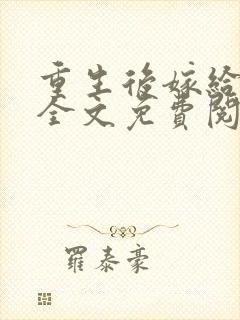 重生後嫁給
全文免費閱
羅泰豪